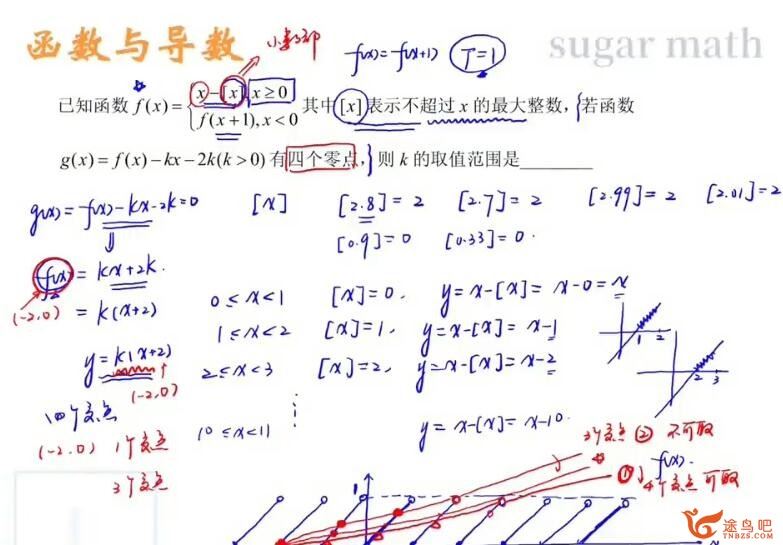 函数与导数
小数部
f(x)=f(x+1) T=1
sugar math
已知函数 f(x)={x-[x], x≥0
其中[x]表示不超过 x 的最大整数，若函数
f(x+1), x<0
g(x)=f(x)-kx-2k(k>0)有四个零点，则 k 的取值范围是
g(x)=f(x)-kx-2k=0 [x] [2.8]=2 [2.7]=2 [2.99]=2 [2.01]=2
[0.9]=0 [0.33]=0.
f(x)=kx+2k.
(-2,0) =k(x+2) 0≤x<1 [x]=0, y=x-[x]=x-0=x
1≤x<2 [x]=1, y=x-[x]=x-1
1 2
y=k(x+2) 2≤x<3 [x]=2, y=x-[x]=x-2
2 3
(-2,0)
个交点 10≤x<11 y=x-[x]=x-10.
(-2,0) 1个交点
3个交点 ② 不可取
3个交点
f(x).
① 4个交点 可取
1
途鸟吧
TNBZS.COM